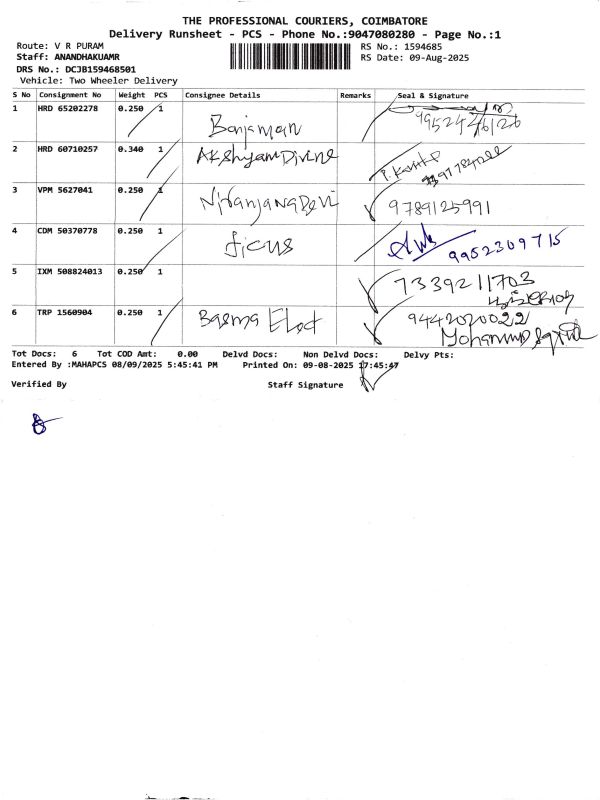 THE PROFESSIONAL COURIERS, COIMBATORE
Delivery Runsheet - PCS - Phone No.:9047080280 - Page No.:1
Route: V R PURAM RS No.: 1594685
Staff: ANANDHAKUAMR RS Date: 09-Aug-2025
DRS No.: DCJB159468501
Vehicle: Two Wheeler Delivery
S No Consignment No Weight PCS Consignee Details Remarks Seal & Signature
1 HRD 65202278 0.250 1 Banjaman 9952446126
2 HRD 60710257 0.340 1 Akshyam Divine
3 VPM 5627041 0.250 1 Niranjana Devi 9789125991
4 CDM 50370778 0.250 1 ficus 9952309715
5 IXM 508824013 0.250 1 7339211703
6 TRP 1560904 0.250 1 Basma Elect 9442020022
Mohammed
Tot Docs: 6 Tot COD Amt: 0.00 Delvd Docs: Non Delvd Docs: Delvy Pts:
Entered By :MAHAPCS 08/09/2025 5:45:41 PM Printed On: 09-08-2025 17:45:47
Verified By Staff Signature